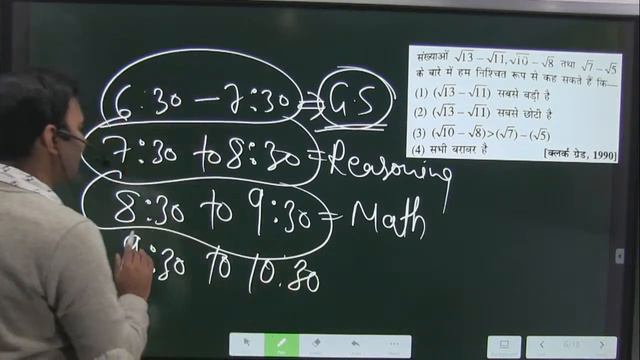 6:30 - 7:30 ⇒ G.S
7:30 to 8:30 = Reasoning
8:30 to 9:30 = Math
9:30 to 10.30
संख्याओं √13 - √11, √10 - √8 तथा √7 - √5
के बारे में हम निश्चित रूप से कह सकते हैं कि—
(1) (√13 - √11) सबसे बड़ी है
(2) (√13 - √11) सबसे छोटी है
(3) (√10 - √8) > (√7) - (√5)
(4) सभी बराबर है [क्लर्क ग्रेड, 1990]